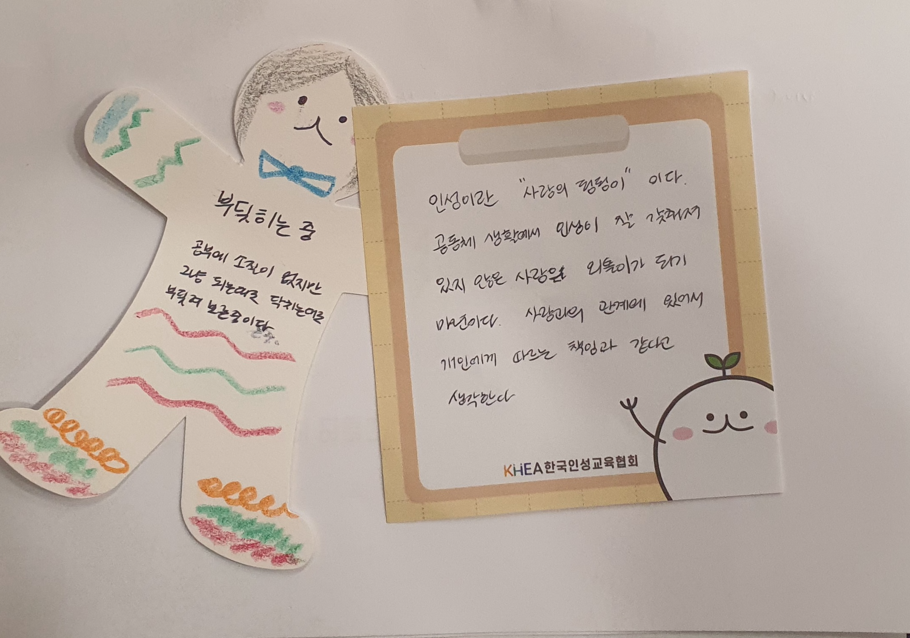 부딪히는 중
공부에 소질이 없지만
그냥 되는대로 닥치는대로
부딪혀 보는중이다
인성이란 "사람의 됨됨이" 이다.
공동체 생활에서 인성이 잘 갖춰져
있지 않은 사람은 외톨이가 되기
마련이다. 사람과의 관계에 있어서
개인에게 따르는 책임과 같다고
생각한다
KHEA한국인성교육협회